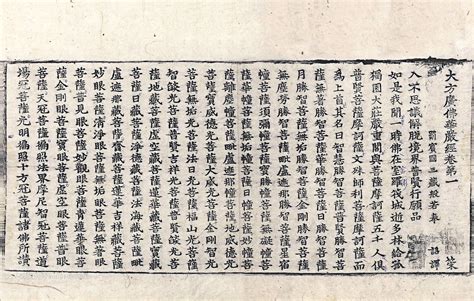 大方廣佛花嚴經卷第一
罽賓國三藏般若奉 詔譯 策
入不思議解脫境界普賢行願品
如是我聞一時佛在室羅筏城逝多林給孤
獨園大莊嚴重閣與菩薩摩訶薩五千人俱
普賢菩薩摩訶薩文殊師利菩薩摩訶薩而
為上首其名曰智慧勝智菩薩普賢勝智菩
薩無著勝智菩薩華勝智菩薩日勝智菩薩
月勝智菩薩無垢勝智菩薩金剛勝智菩薩
無塵勞勝智菩薩毘盧遮那勝智菩薩星宿
幢菩薩須彌幢菩薩寶勝幢菩薩無礙幢菩
薩華幢菩薩無垢幢菩薩日幢菩薩妙幢菩
薩離塵幢菩薩毘盧遮那幢菩薩地威德光
菩薩寶威德光菩薩大威德光菩薩金剛智
菩薩福山光菩薩
智燄光菩薩普賢吉祥光菩薩普賢燄光菩
薩地藏菩薩虛空藏菩薩蓮華藏菩薩寶藏
菩薩日藏菩薩
盧遮那藏菩薩蓮華吉祥藏菩薩
妙眼菩薩清淨眼菩薩無垢眼菩薩
菩薩普見眼菩薩
薩金剛眼菩薩虛空眼菩薩普眼
菩薩天冠菩薩
場冠菩薩光明徧照十方冠菩薩諸佛所讚